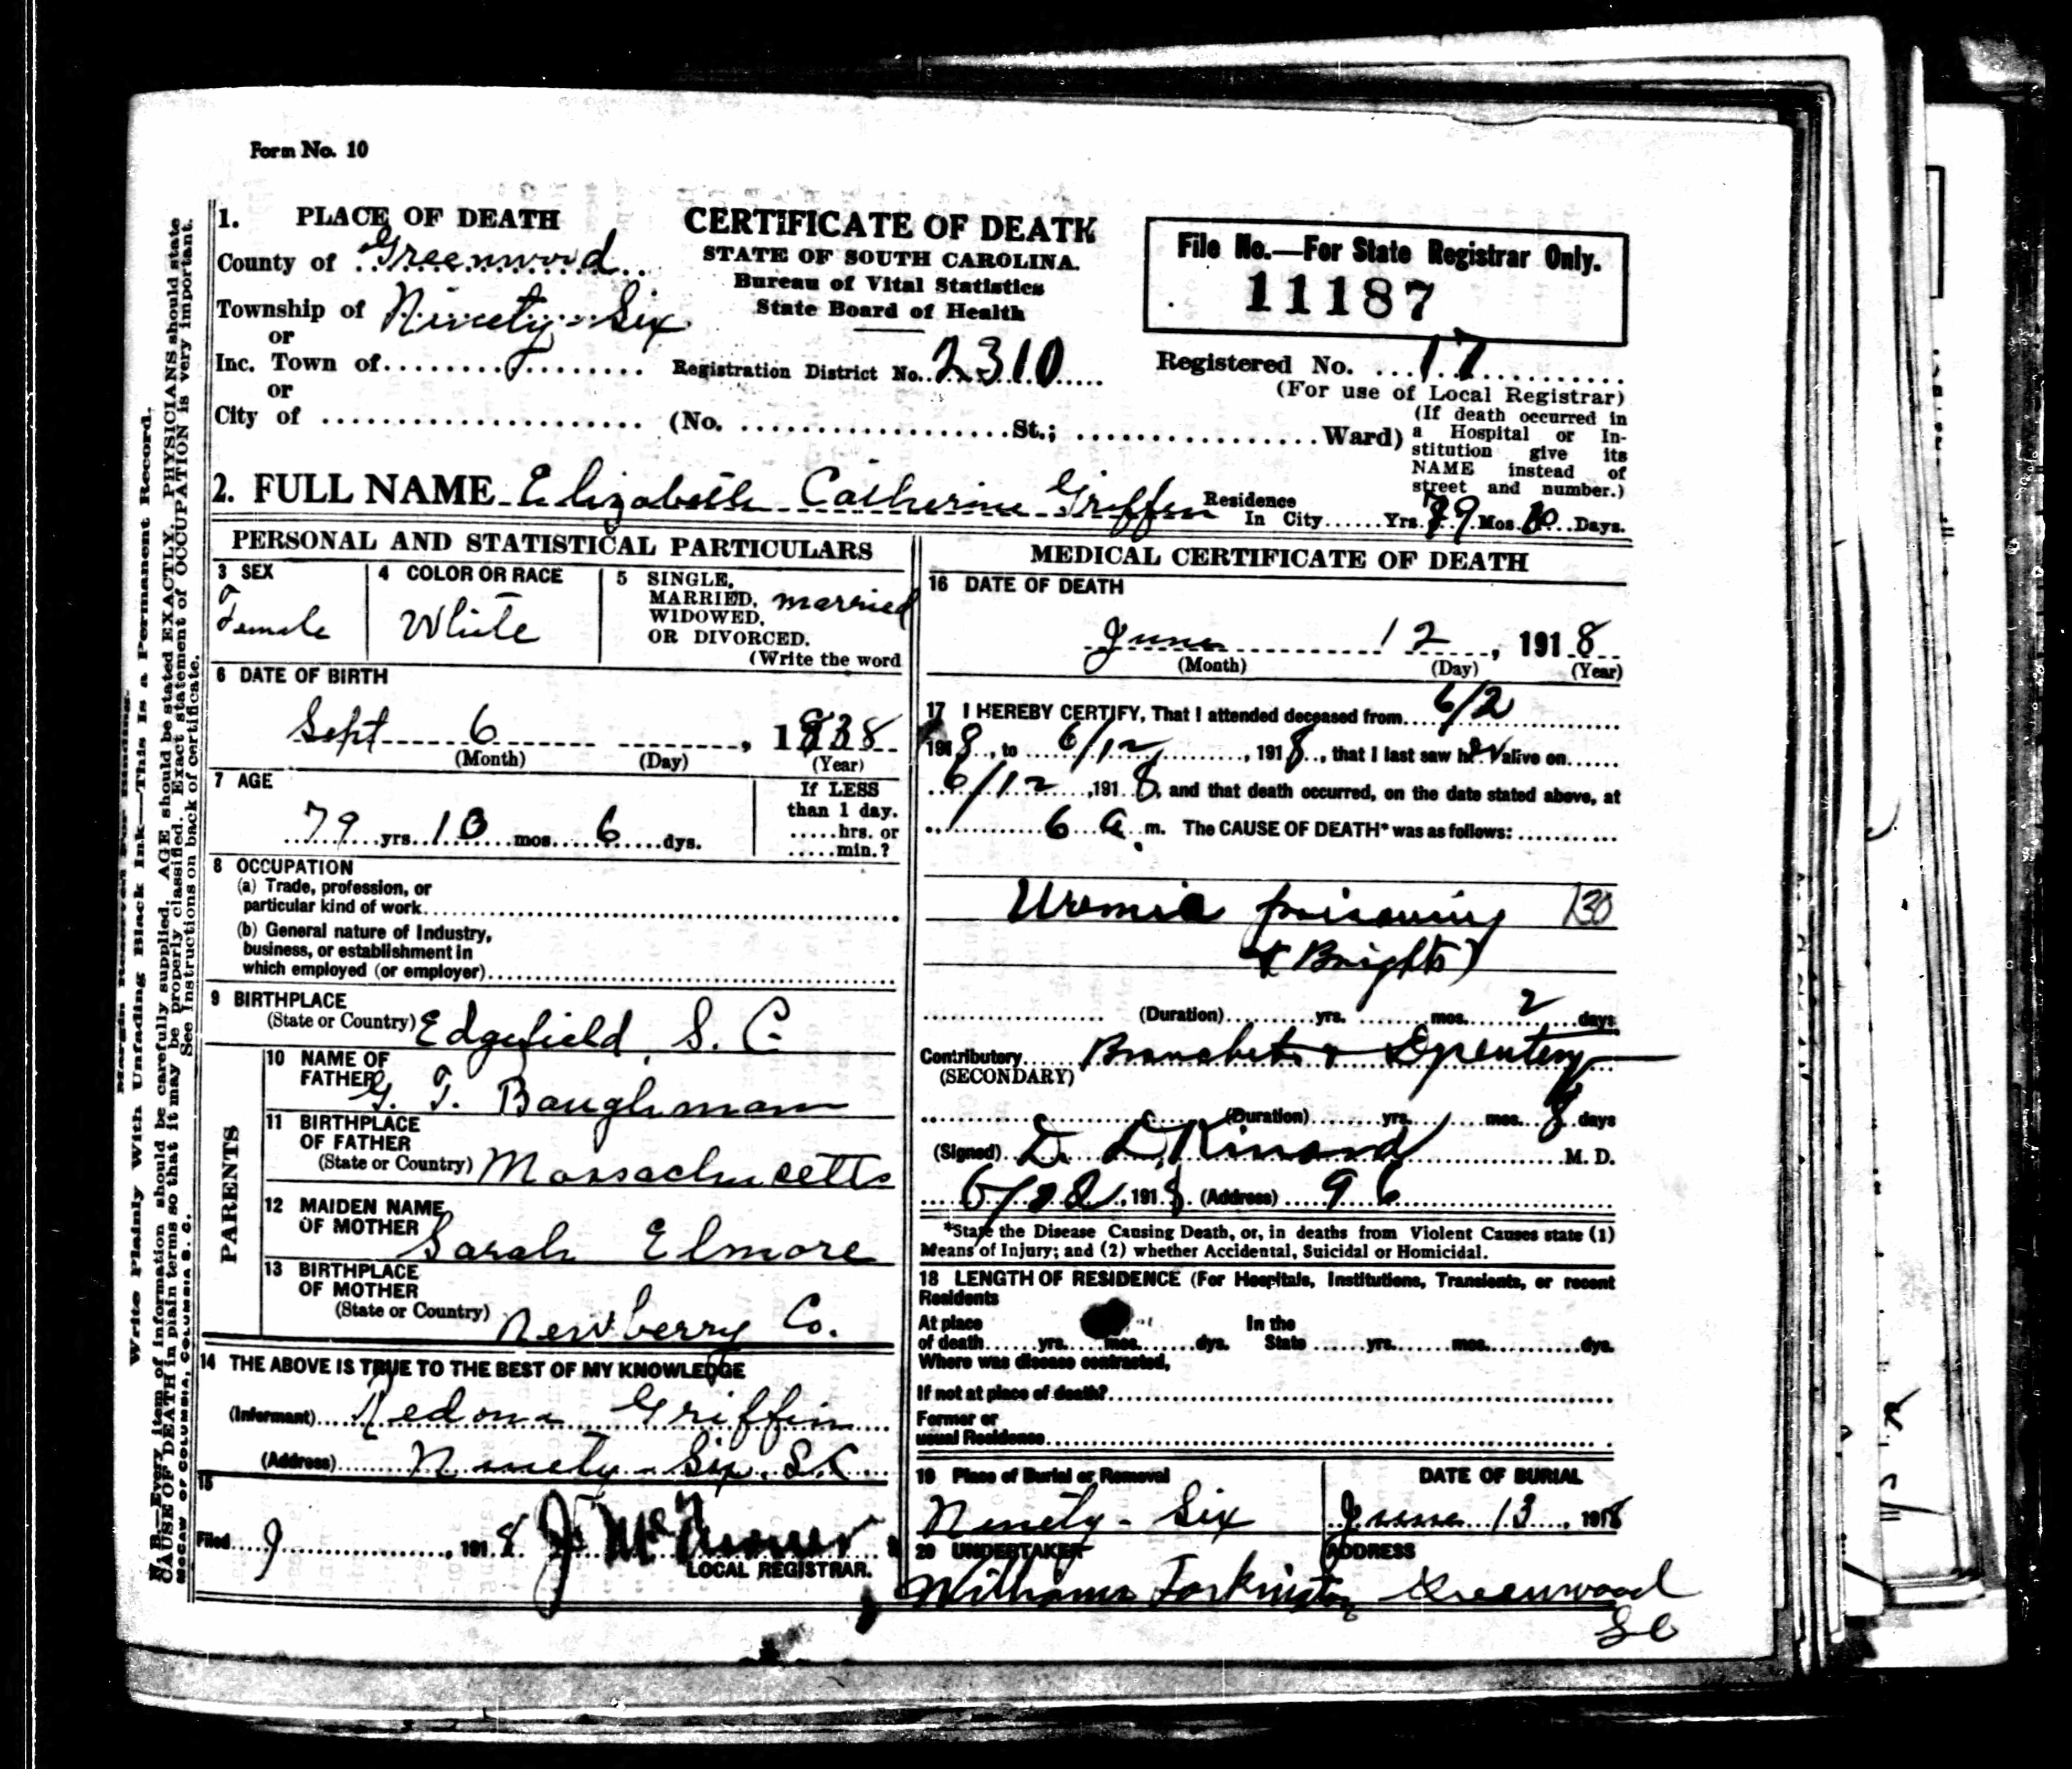 Form No. 10
1. PLACE OF DEATH
County of Greenwood
Township of Ninety-Six
or
Inc. Town of
or
City of
CERTIFICATE OF DEATH
STATE OF SOUTH CAROLINA.
Bureau of Vital Statistics
State Board of Health
Registration District No. 2310
(No. St.; Ward)
File No.—For State Registrar Only.
11187
Registered No. 17
(For use of Local Registrar)
(If death occurred in
a Hospital or In-
stitution give its
NAME instead of
street and number.)
2. FULL NAME Elizabeth Catherine Griffin
Residence
In City Yrs. 79 Mos. 10 Days.
PERSONAL AND STATISTICAL PARTICULARS
3 SEX
Female
4 COLOR OR RACE
White
5 SINGLE,
MARRIED, married
WIDOWED,
OR DIVORCED.
(Write the word
6 DATE OF BIRTH
Sept 6, 1838
(Month) (Day) (Year)
7 AGE
79 yrs. 10 mos. 6 dys.
If LESS
than 1 day.
hrs. or
min.?
8 OCCUPATION
(a) Trade, profession, or
particular kind of work
(b) General nature of Industry,
business, or establishment in
which employed (or employer)
9 BIRTHPLACE
(State or Country) Edgefield, S. C.
PARENTS
10 NAME OF
FATHER G. T. Baughman
11 BIRTHPLACE
OF FATHER
(State or Country) Massachusetts
12 MAIDEN NAME
OF MOTHER Sarah Elmore
13 BIRTHPLACE
OF MOTHER
(State or Country) Newberry Co.
14 THE ABOVE IS TRUE TO THE BEST OF MY KNOWLEDGE
(Informant) Griffin
(Address) Ninety-Six S.C.
15
Filed , 1918 J.
LOCAL REGISTRAR.
MEDICAL CERTIFICATE OF DEATH
16 DATE OF DEATH
June 12, 1918
(Month) (Day) (Year)
17 I HEREBY CERTIFY, That I attended deceased from 6/2
1918, to 6/12, 1918, that I last saw her alive on
6/12, 1918, and that death occurred, on the date stated above, at
6 a. m. The CAUSE OF DEATH* was as follows:
Uremic poisoning 130
(Brights)
(Duration) yrs. mos. 2 days
Contributory
(SECONDARY)
(Duration) yrs. mos. 8 days
(Signed) D. D. Kinard M. D.
1918. (Address) 96
*State the Disease Causing Death, or, in deaths from Violent Causes state (1)
Means of Injury; and (2) whether Accidental, Suicidal or Homicidal.
18 LENGTH OF RESIDENCE (For Hospitals, Institutions, Transients, or recent
Residents
At place In the
of death yrs. mos. dys. State yrs. mos. dys.
Where was disease contracted,
If not at place of death?
Former or
usual Residence
19 Place of Burial or Removal
Ninety-Six
DATE OF BURIAL
June 13, 1918
20 UNDERTAKER
Williams
ADDRESS
Greenwood
SC
Margin Reserved For Binding.
Write Plainly With Unfading Black Ink—This Is a Permanent Record.
N. B.—Every item of information should be carefully supplied. AGE should be stated EXACTLY. PHYSICIANS should state
CAUSE OF DEATH in plain terms so that it may be properly classified. Exact statement of OCCUPATION is very important.
See Instructions on back of certificate.
McCAW OF COLUMBIA, COLUMBIA S. C.